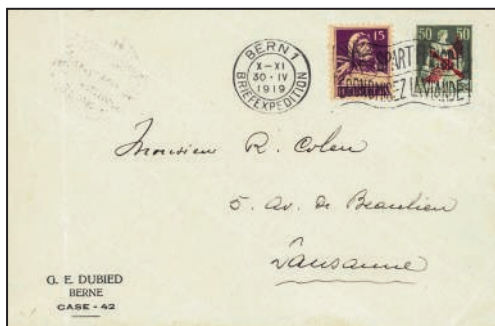 BERN 1
X-XI
30·IV
1919
BRIEFEXPEDITION
15
50 50
Monsieur R. Cohen
5. Av. de Beaulieu
Lausanne
G. E. DUBIED
BERNE
CASE - 42